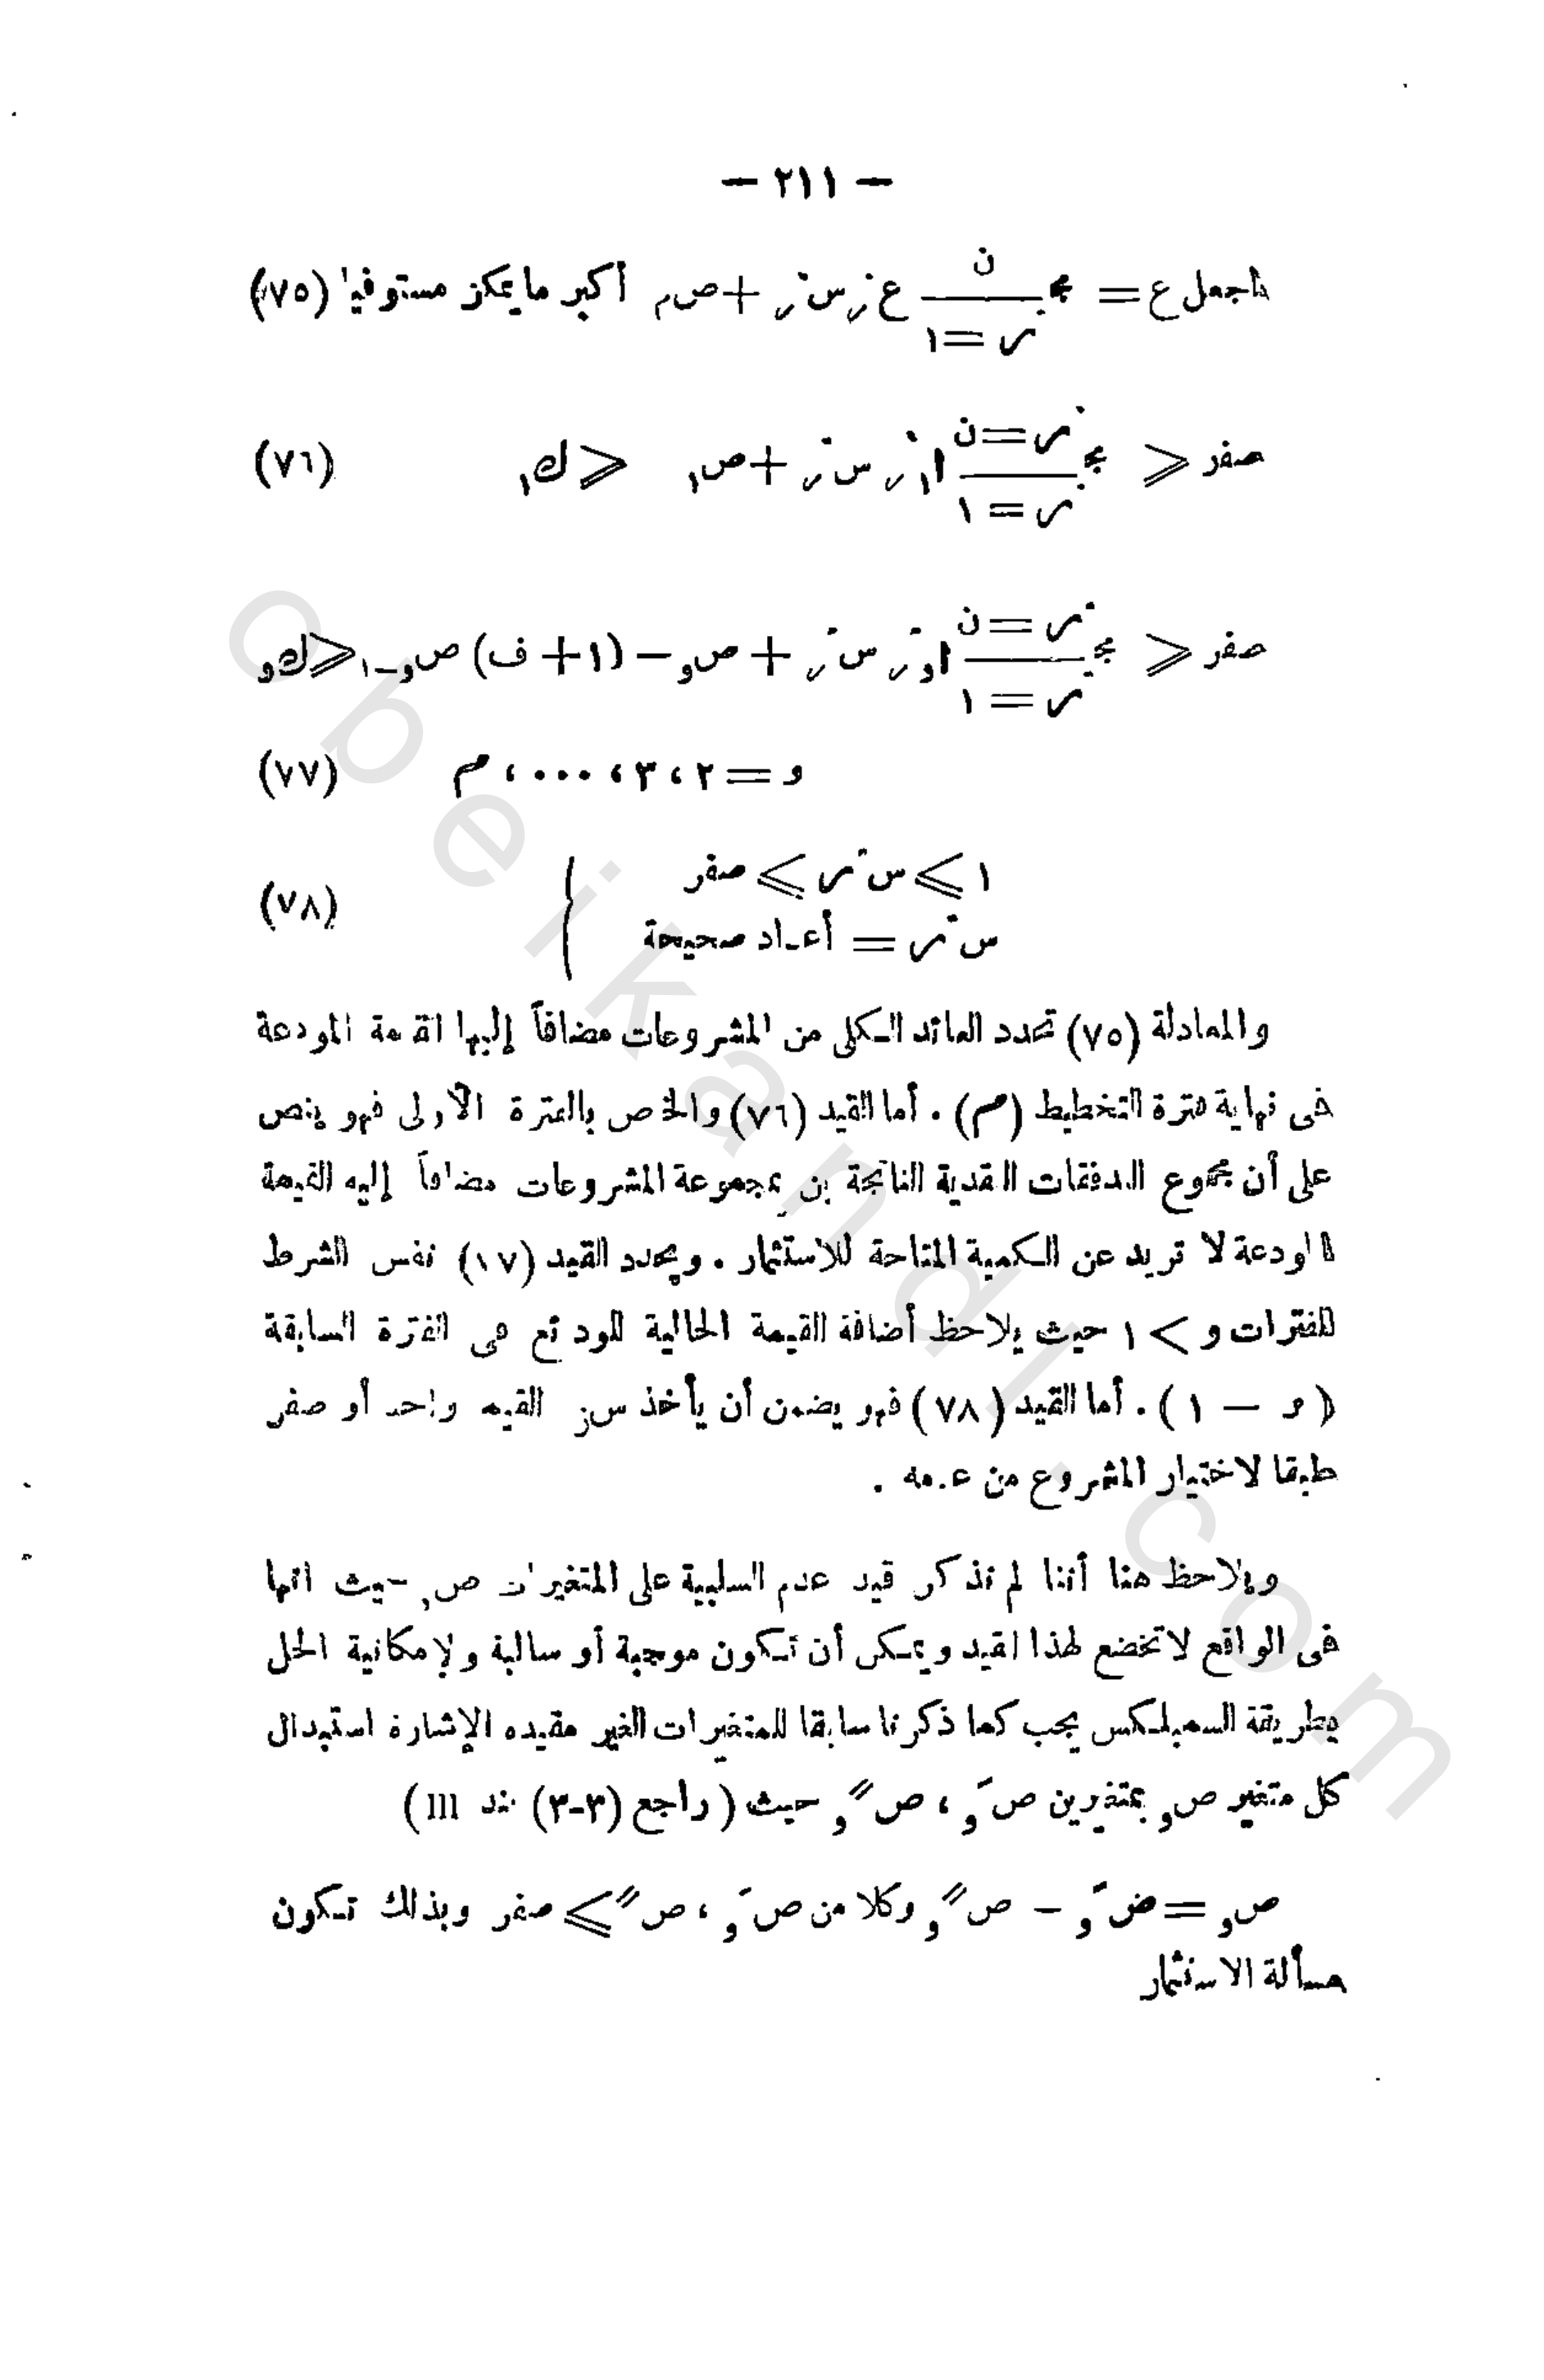 — ٢١١ —
اجعل ع = مجـ ن ز=١ ع ز س ز + ص م أكبر ما يمكن مستوفيا (٧٥)
صفر ⩽ مجـ ز=ن ز=١ ا ١ ز س ز + ص ١ ⩽ ك ١ (٧٦)
صفر ⩽ مجـ ز=ن ز=١ ا و ز س ز + ص و − (١ + ف) ص و−١ ⩽ ك و
و = ٢ ، ٣ ، ٠٠٠ ، م (٧٧)
١ ⩾ س ز ⩾ صفر
س ز = أعداد صحيحة } (٧٨)
والمعادلة (٧٥) تحدد العائد الكلى من المشروعات مضافاً إليها القيمة المودعة
فى نهاية فترة التخطيط (م) . أما القيد (٧٦) والخاص بالفترة الأولى فهو ينص
على أن مجموع الدفقات النقدية الناتجة من مجموعة المشروعات مضافاً إليه القيمة
المودعة لا تزيد عن الكمية المتاحة للاستثمار . ويحدد القيد (٧٧) نفس الشرط
للفترات و > ١ حيث يلاحظ أضافة القيمة الحالية للودائع فى الفترة السابقة
( و — ١ ) . أما القيد ( ٧٨ ) فهو يضمن أن يأخذ س ز القيمه واحد أو صفر
طبقا لاختيار المشروع من عدمه .
ويلاحظ هنا أننا لم نذكر قيد عدم السلبية على المتغيرات ص و حيث انها
فى الواقع لا تخضع لهذا القيد ويمكن أن تكون موجبة أو سالبة ولإمكانية الحل
بطريقة السمبلكس يجب كما ذكرنا سابقا للمتغيرات الغير مقيده الإشارة استبدال
كل متغير ص و بمتغيرين صَ و ، ص ً و حيث ( راجع (٣-٣) بند III )
ص و = صَ و − ص ً و وكلا من صَ و ، ص ً ⩾ صفر وبذلك تكون
مسألة الاستثمار
obeikandl.com